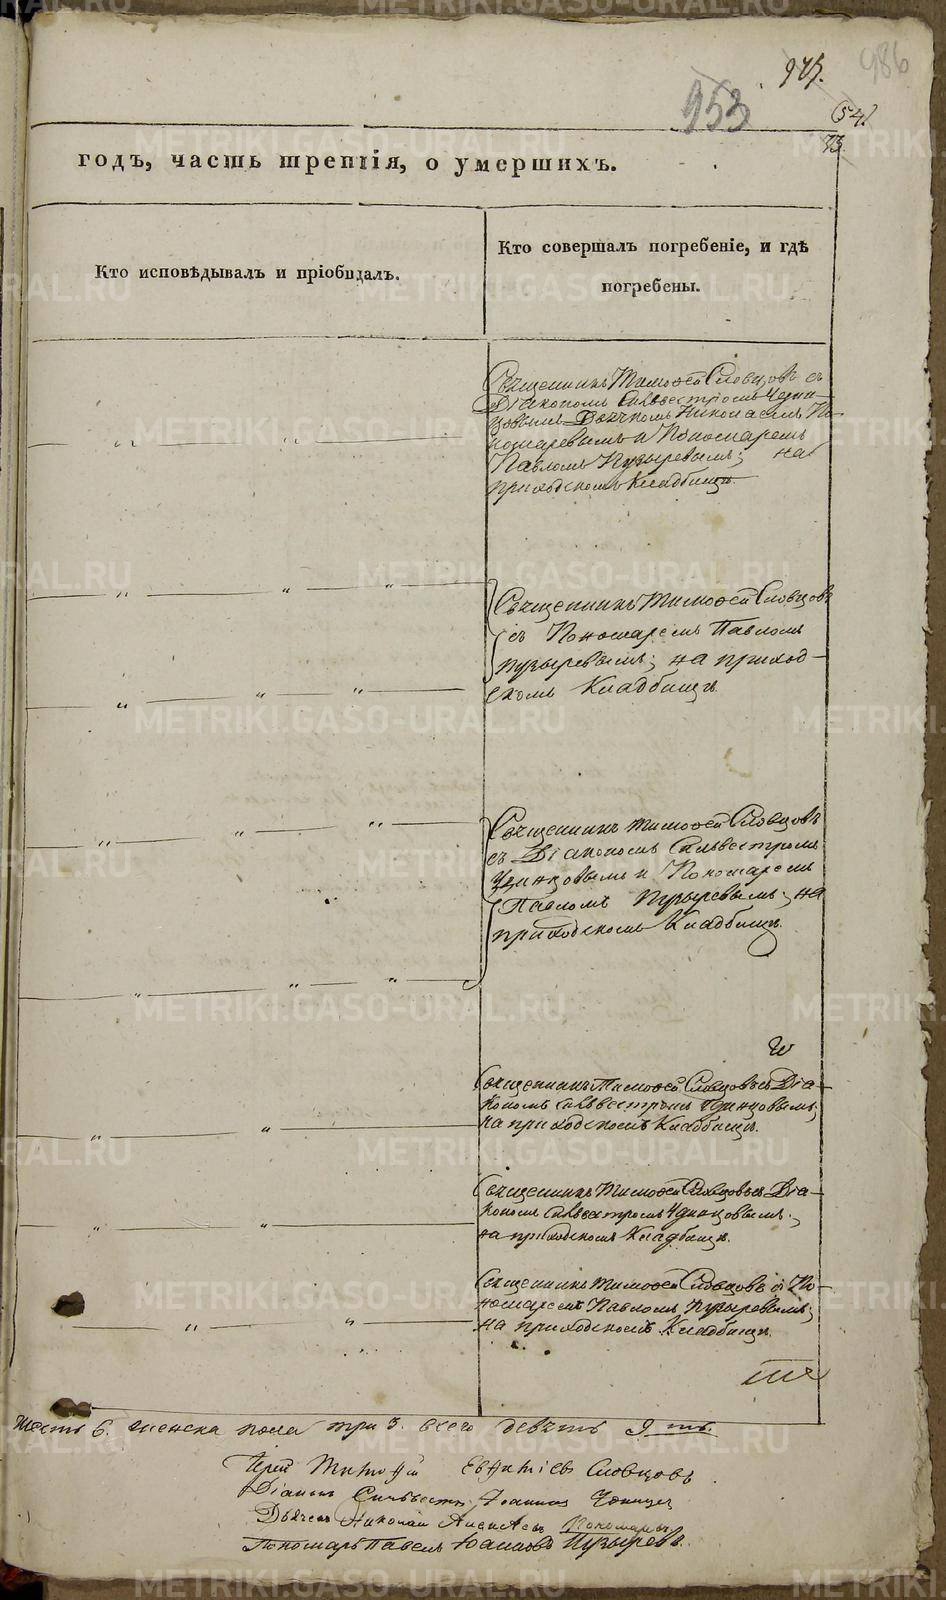 975.
986
953
54
73
годъ, часть третія, о умершихъ.
Кто исповѣдывалъ и пріобщалъ.
Кто совершалъ погребеніе, и гдѣ
погребены.
Священникъ Тимоѳей Словцовъ съ
Діакономъ Сильвестромъ
Дьячкомъ Николаемъ По-
номаревымъ и Пономаремъ
Павломъ Пузыревымъ; на
приходскомъ Кладбищѣ.
Священникъ Тимоѳей Словцовъ
съ Пономаремъ Павломъ
Пузыревымъ; на приход-
скомъ Кладбищѣ.
Священникъ Тимоѳей Словцовъ
съ Діакономъ Сильвестромъ
и Пономаремъ
Павломъ Пузыревымъ; на
приходскомъ Кладбищѣ.
Священникъ Тимоѳей Словцовъ съ Діа-
кономъ Сильвестромъ
на приходскомъ Кладбищѣ.
Священникъ Тимоѳей Словцовъ съ Діа-
кономъ Сильвестромъ
на приходскомъ Кладбищѣ.
Священникъ Тимоѳей Словцовъ съ По-
номаремъ Павломъ Пузыревымъ;
на приходскомъ Кладбищѣ.
шесть 6. женска пола три 3. всего девять 9ть.
Іерей Тимоѳей Словцовъ.
Діаконъ Сильвестръ Іоанновъ
Дьячекъ Николай Алексѣевъ Пономаревъ
Пономарь Павелъ Іоанновъ Пузыревъ.
METRIKI.GASO-URAL.RU